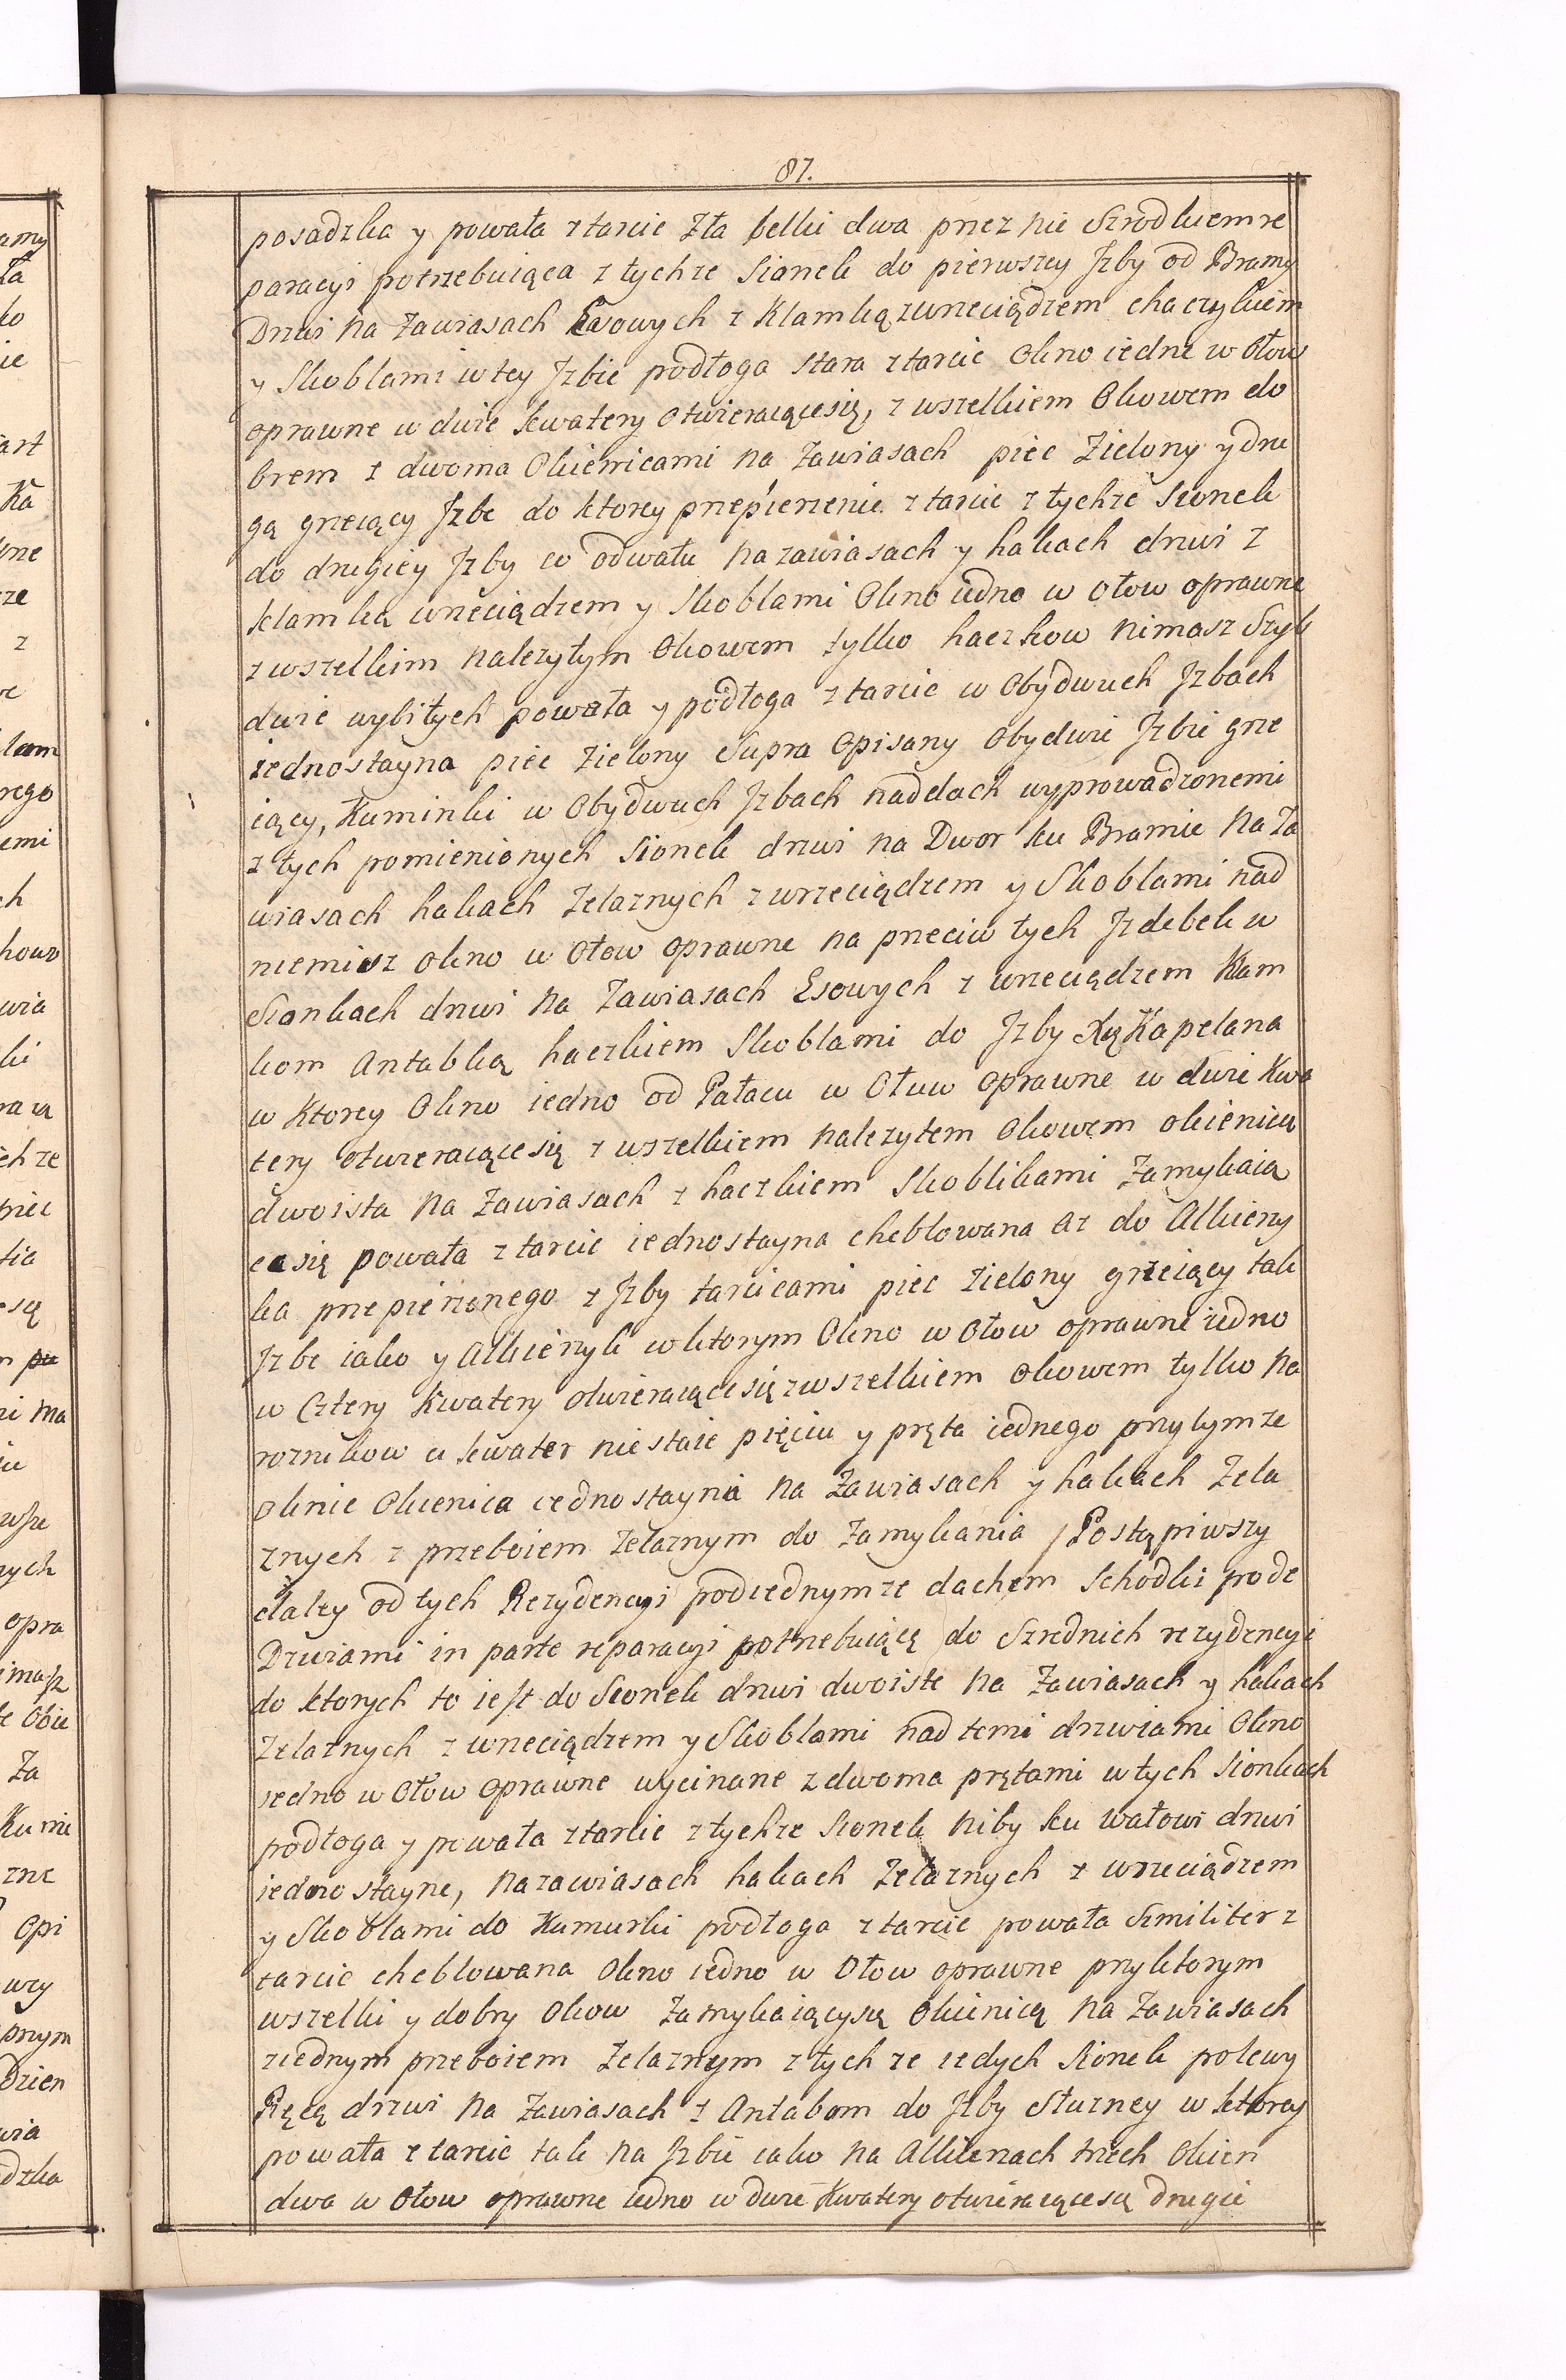 87.
posadzka y powała ztarcic Zła belki dwa przez nie Szrodkiem re
paracyi potrzebuiąca z tychze Sionek do pierwszey Jzby od Bramy
Drzwi na Zawiasach Esowych z Klamką zwrzeciądzem chaczykiem
y Skoblami w tey Jzbie podłoga stara ztarcic Okno iedne w Ołow
oprawne w dwie kwatery otwieraiącesię, z wszelkiem Okowem do
brem z dwoma Okienicami na Zawiasach piec Zielony y dru
gą grzeiący Jzbe do ktorey przepierzenie ztarcic z tychze Sionek
do drugiey Jzby co odwału na zawiasach y hakach drzwi z
klamką wrzeciądzem y Skoblami Okno iedno w ołow oprawne
z wszelkim należytym Okowem tylko haczkow nimasz Szyb
dwie wybitych powała y podłoga ztarcic w Obydwuch Jzbach
iednostayna piec Zielony Supra Opisany Obydwie Jzbie grze
iący, Kuminki w Obydwuch Jzbach naddach wyprowadzonemi
z tych pomienionych Sionek drzwi na Dwor ku Bramie na Za
wiasach hakach Zelaznych z wrzeciądzem y Skoblami nad
niemisz okno w Ołow oprawne na przeciw tych Jzdebek w
Sionkach drzwi na Zawiasach Esowych z wrzeciądzem Klam
kom Antabką haczkiem Skoblami do Jzby Xię Kapelana
w Ktorey Okno iedno od Pałacu w Ołuw oprawne w dwie Kwa
tery otwieraiącesię z wszelkiem należytem Okowem okienica
dwoista na Zawiasach z haczkiem Skoblikami Zamykaią
casię powała ztarcic iednostayna cheblowana az do Alkierzy
ka przepierzonego z Jzby tarcicami piec zielony grzeiący tak
Jzbe iako y Alkierzyk wktorym Okno w Ołow oprawne iedno
w Cztery Kwatery otwieraiącesię zwszelkiem okowem tylko Na
roznikow u kwater niestaie pięciu y pręta iednego przytymze
oknie Okienica iednostayna na Zawiasach y hakach Zela
znych z przeboiem Zelaznym do Zamykania / Postąpiwszy
dalzy od tych Rezydencyi podiednymze dachem Schodki prode
Drzwiami in parte reparacyi potrzebuiącą do Szrednich rezydencyi
do ktorych to iest do Sionek drzwi dwoiste na Zawiasach y hakach
Zelaznych z wrzeciądzem y Skoblami nad temi drzwiami Okno
iedno w Ołow oprawne wycinane z dwoma prętami w tych Sionkach
podłoga y powała ztarcic z tychze Sionek niby ku wałowi drzwi
iednostayne, na zawiasach hakach Zelaznych z wrzeciądzem
y Skoblami do Kumurki podłoga ztarcic powała Szmiliter z
tarcic cheblowana Okno iedno w Ołow oprawne przyktorym
wszelki y dobry Okow Zamykaiącysię Okienicą na Zawiasach
ziednym przeboiem Zelaznym z tych ze iedych Sionek polewy
Ręcą drzwi na Zawiasach z Antabom do Jzby Sturney w ktorey
powała ztarcic tak na Jzbie iako na Alkierzach trzech Okien
dwa w Ołow oprawne iedno w dwie Kwatery otwieraiącesię drugie